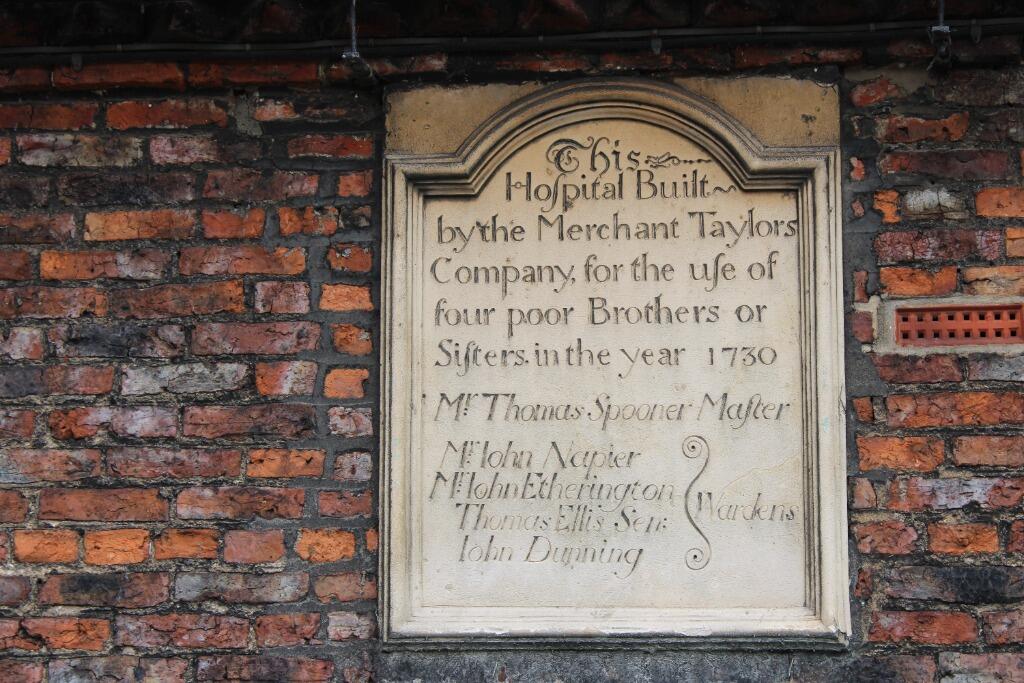 This
Hoſpital Built
by the Merchant Taylors
Company, for the uſe of
four poor Brothers or
Siſters. in the year 1730
Mr Thomas Spooner Maſter
Mr Iohn Napier
Mr Iohn Etherington
Thomas Ellis Sen:
Iohn Dunning
Wardens